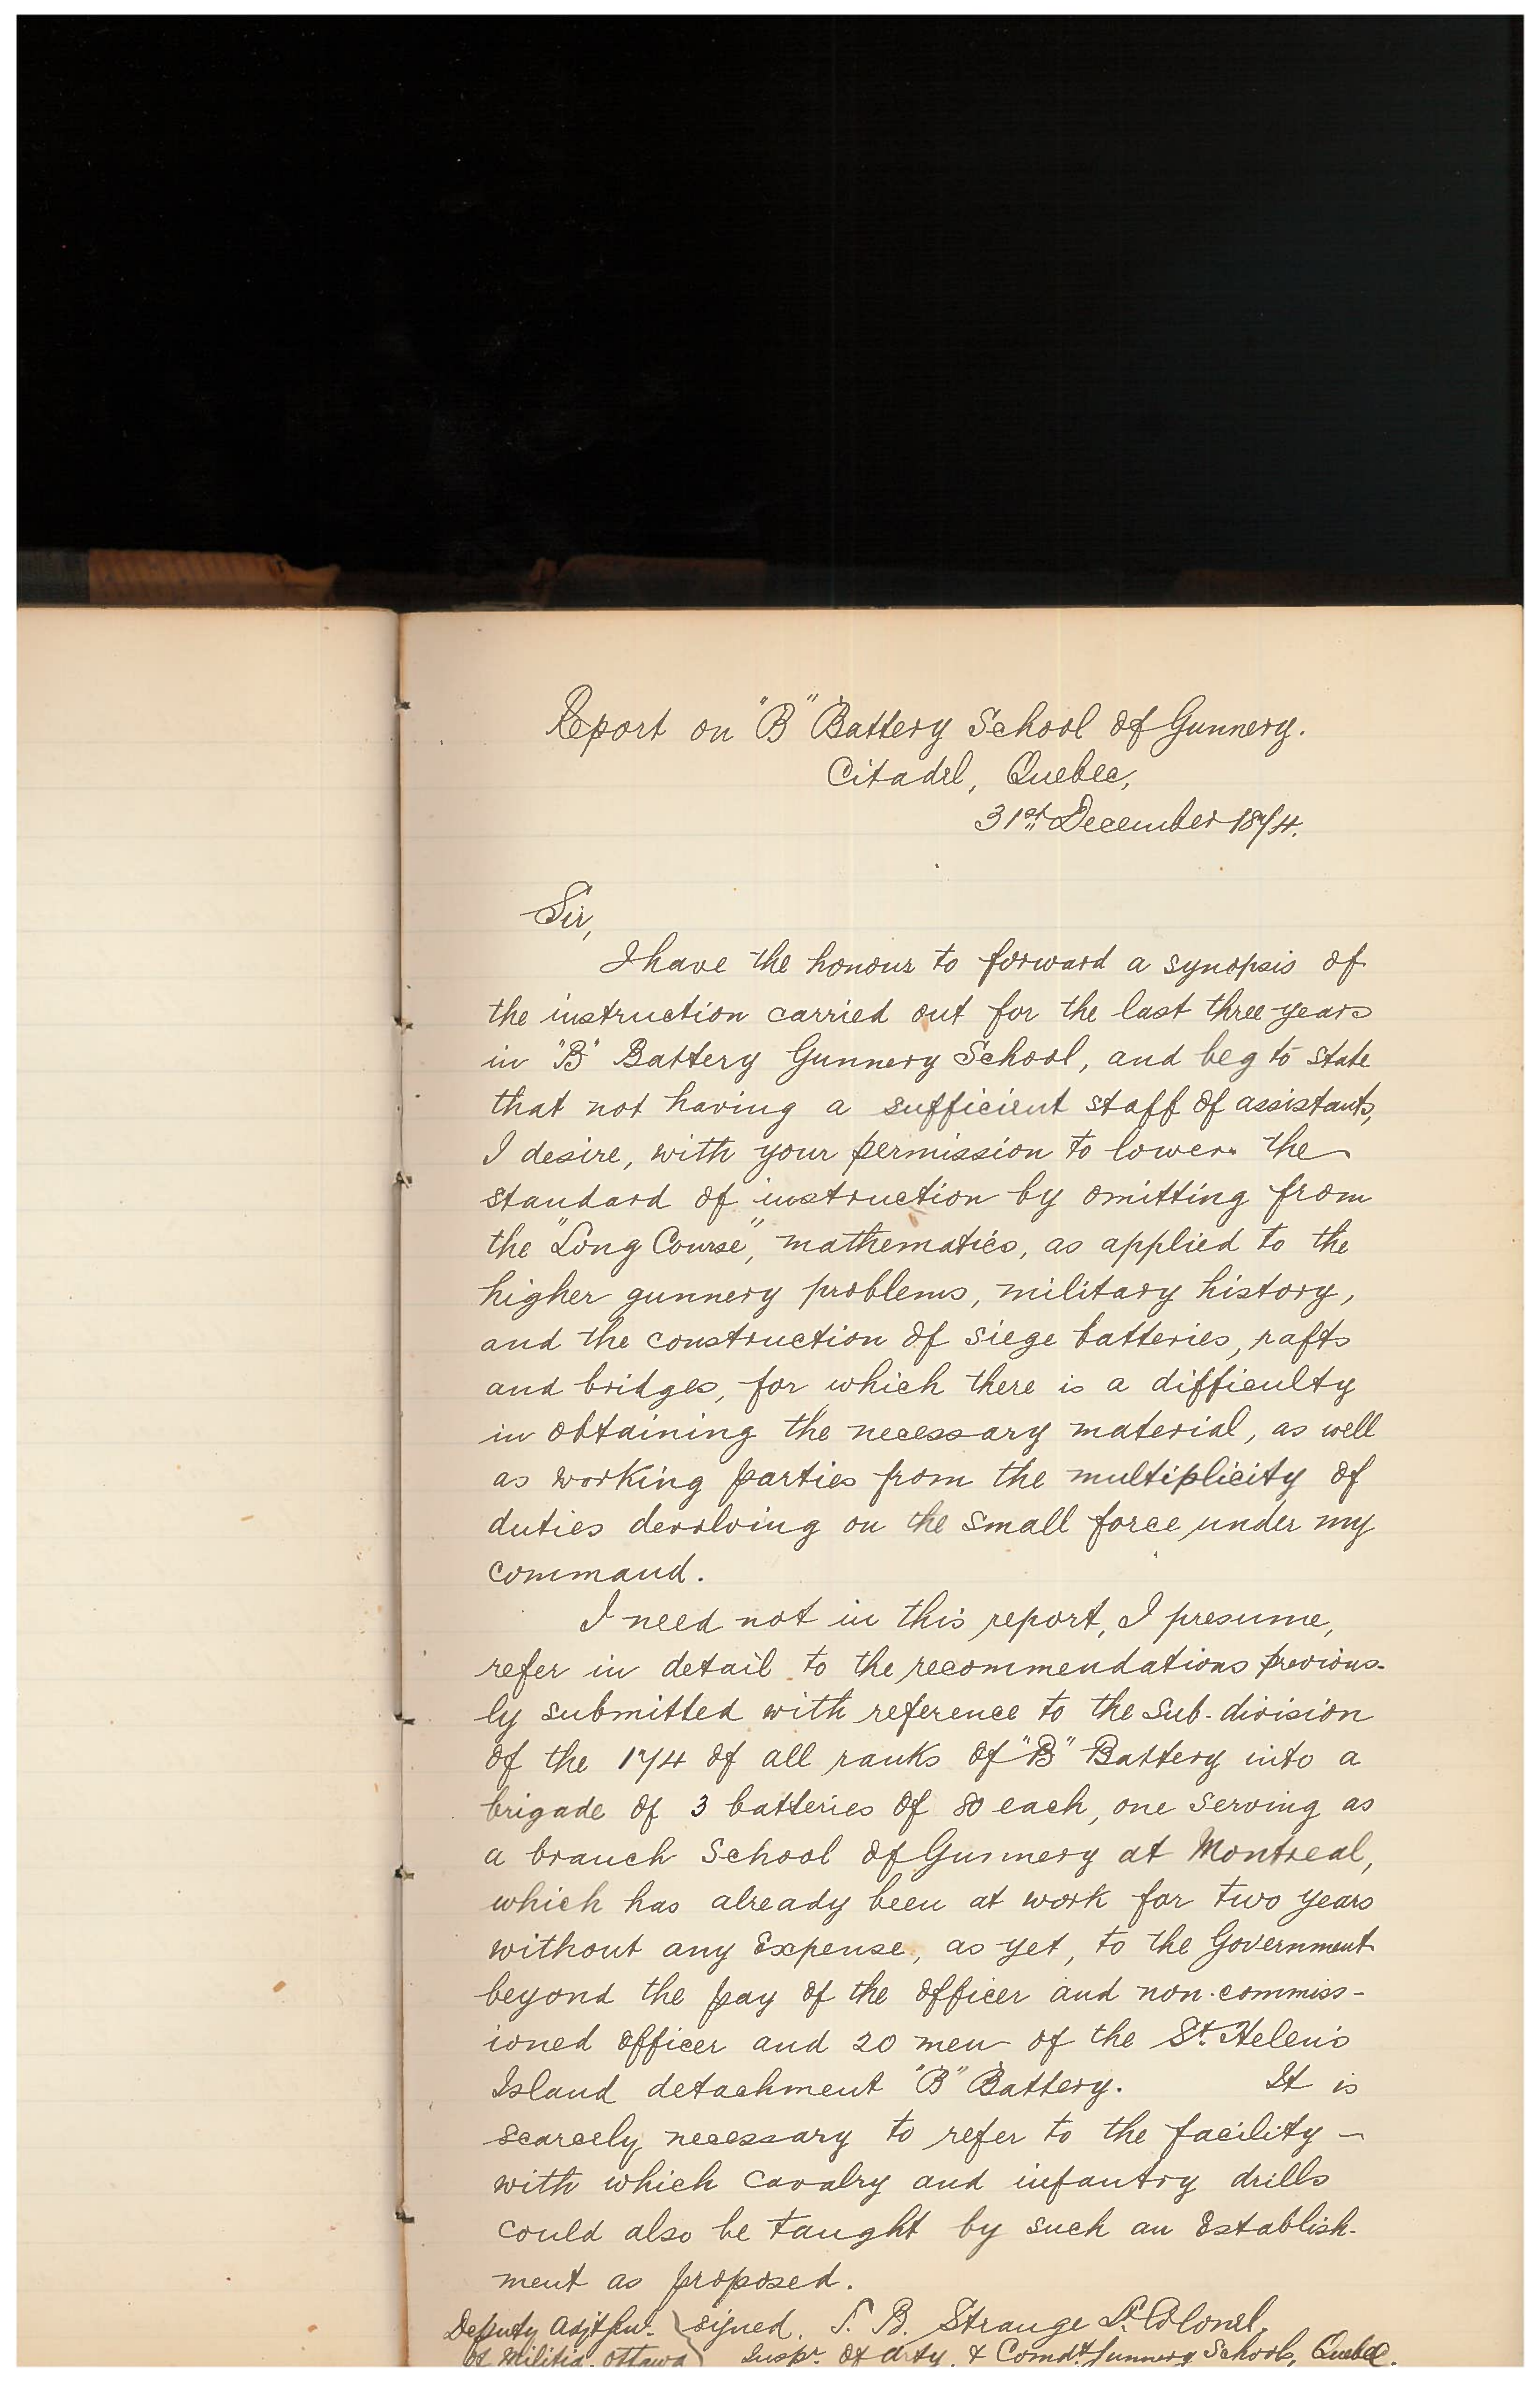 Report on "B" Battery School of Gunnery.
Citadel, Quebec,
31st December 1874.
Sir,
I have the honour to forward a synopsis of
the instruction carried out for the last three years
in "B" Battery Gunnery School, and beg to state
that not having a sufficient staff of assistants,
I desire, with your permission to lower the
standard of instruction by omitting from
the "Long Course", mathematics, as applied to the
higher gunnery problems, military history,
and the construction of siege batteries, rafts
and bridges, for which there is a difficulty
in obtaining the necessary material, as well
as working parties from the multiplicity of
duties devolving on the small force under my
command.
I need not in this report, I presume,
refer in detail to the recommendations previous-
ly submitted with reference to the sub-division
of the 174 of all ranks of "B" Battery into a
brigade of 3 batteries of 80 each, one serving as
a branch School of Gunnery at Montreal,
which has already been at work for two years
without any Expense, as yet, to the Government
beyond the pay of the officer and non-commiss-
ioned officer and 20 men of the St. Helen's
Island detachment "B" Battery. It is
scarcely necessary to refer to the facility
with which cavalry and infantry drills
could also be taught by such an Establish-
ment as proposed.
Deputy Adjt Gen. signed. T. B. Strange Lt. Colonel,
of Militia. Ottawa Inspr. of Arty. & Comdt. Gunnery Schools, Quebec.